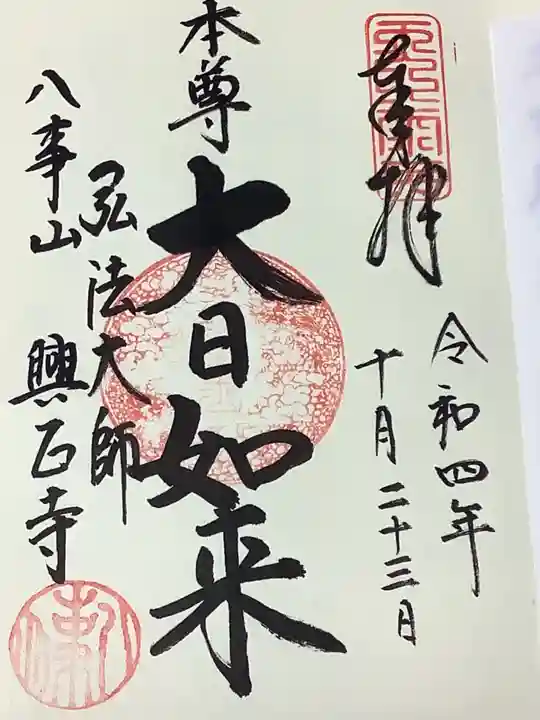 奉拝
令和四年
十月二十三日
本尊
大日如来
弘法大師
八事山 興正寺